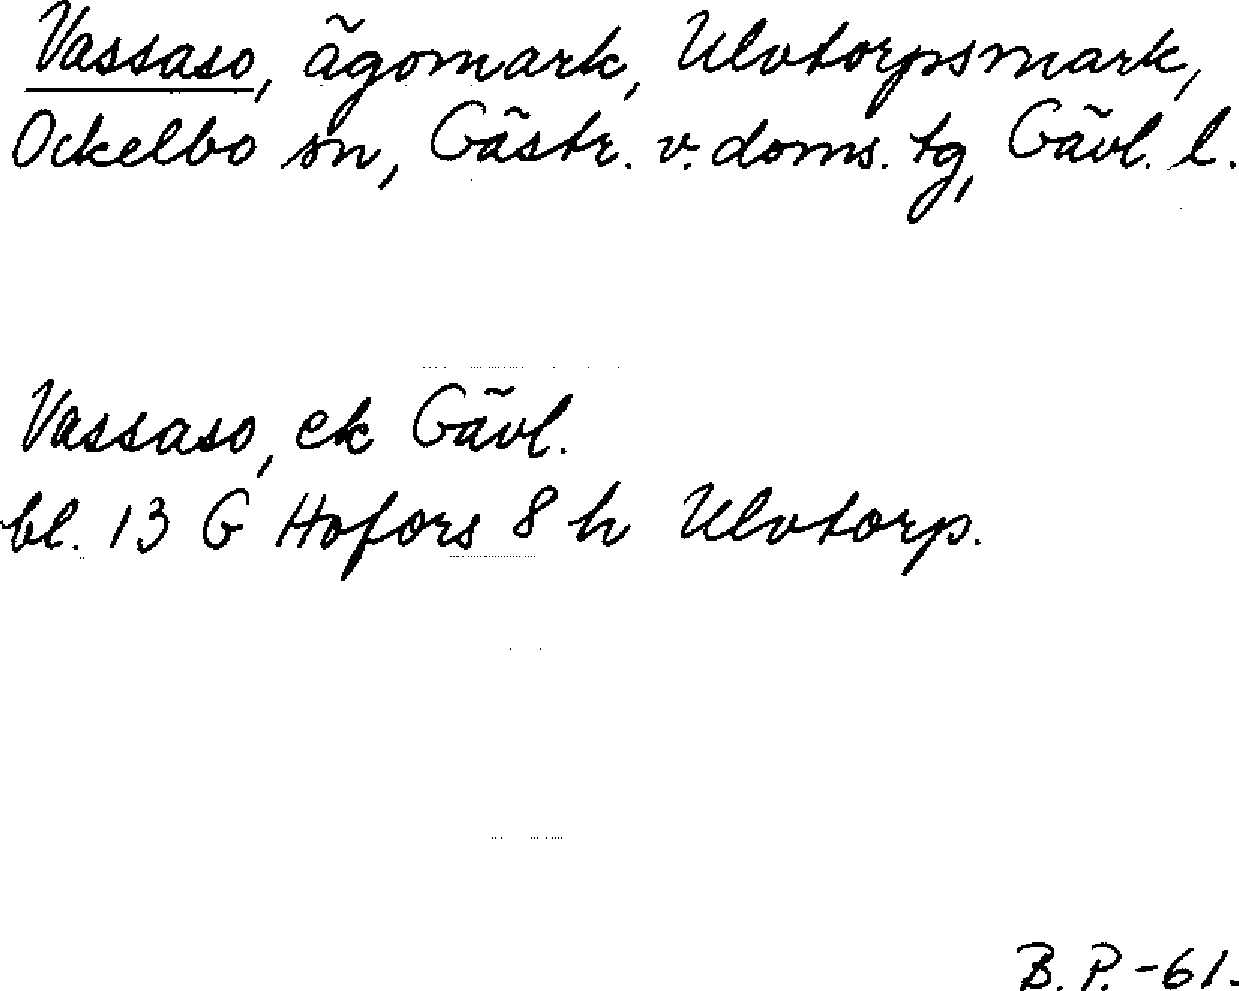 Vassaso, ägomark, Ulvtorpsmark,
Ockelbo sn, Gästr. v. doms. tg, Gävl. l.
Vassaso, ek Gävl.
bl. 13 G Hofors 8 h Ulvtorp.
B. P. -61.